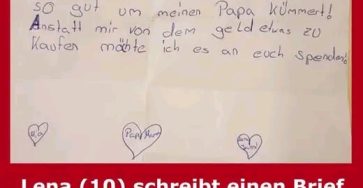 so gut um meinen Papa kümmert!
Anstatt mir von dem geld etwas zu
Kaufen möhte ich es an euch spenden!
Papa Mama
Lena (10) schreibt einen Brief